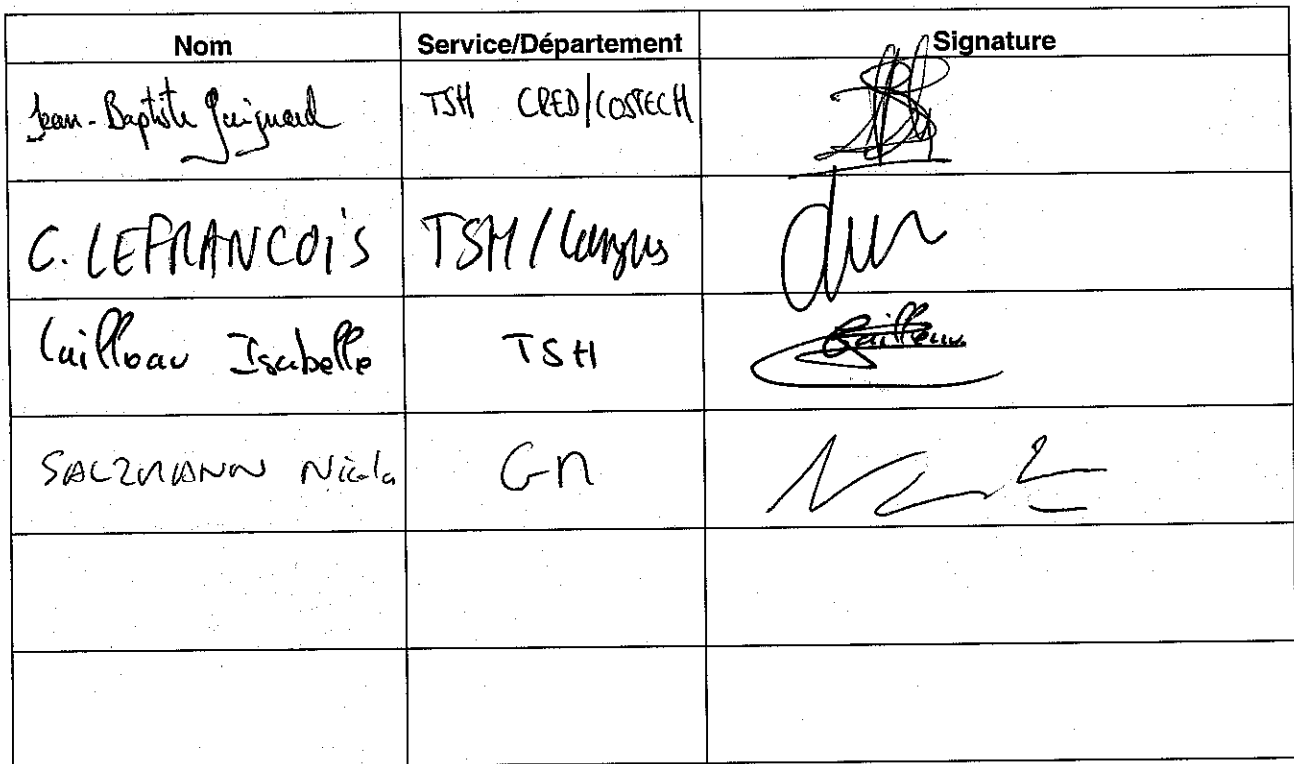 Nom Service/Département Signature
Jean-Baptiste Guignard TSH CRED/COSTECH
C. LEFRANCOIS TSH/Langues
Cailleau Isabelle TSH Cailleau
SALZMANN Nicola